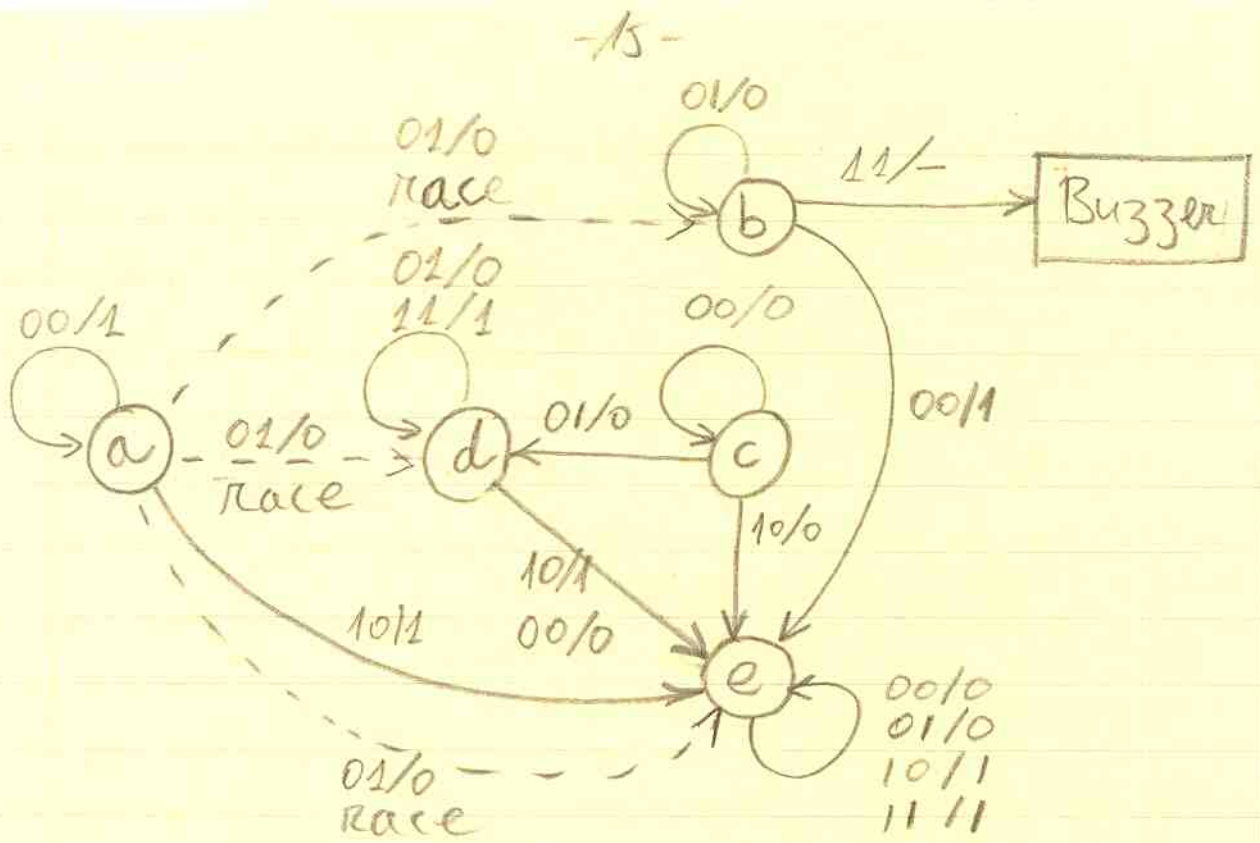 -15-
01/0
01/0
race
11/-
Buzzer
b
01/0
11/1
00/0
00/1
00/1
a
01/0
race
d
01/0
c
10/0
10/1
00/0
10/1
e
00/0
01/0
10/1
11/1
01/0
race